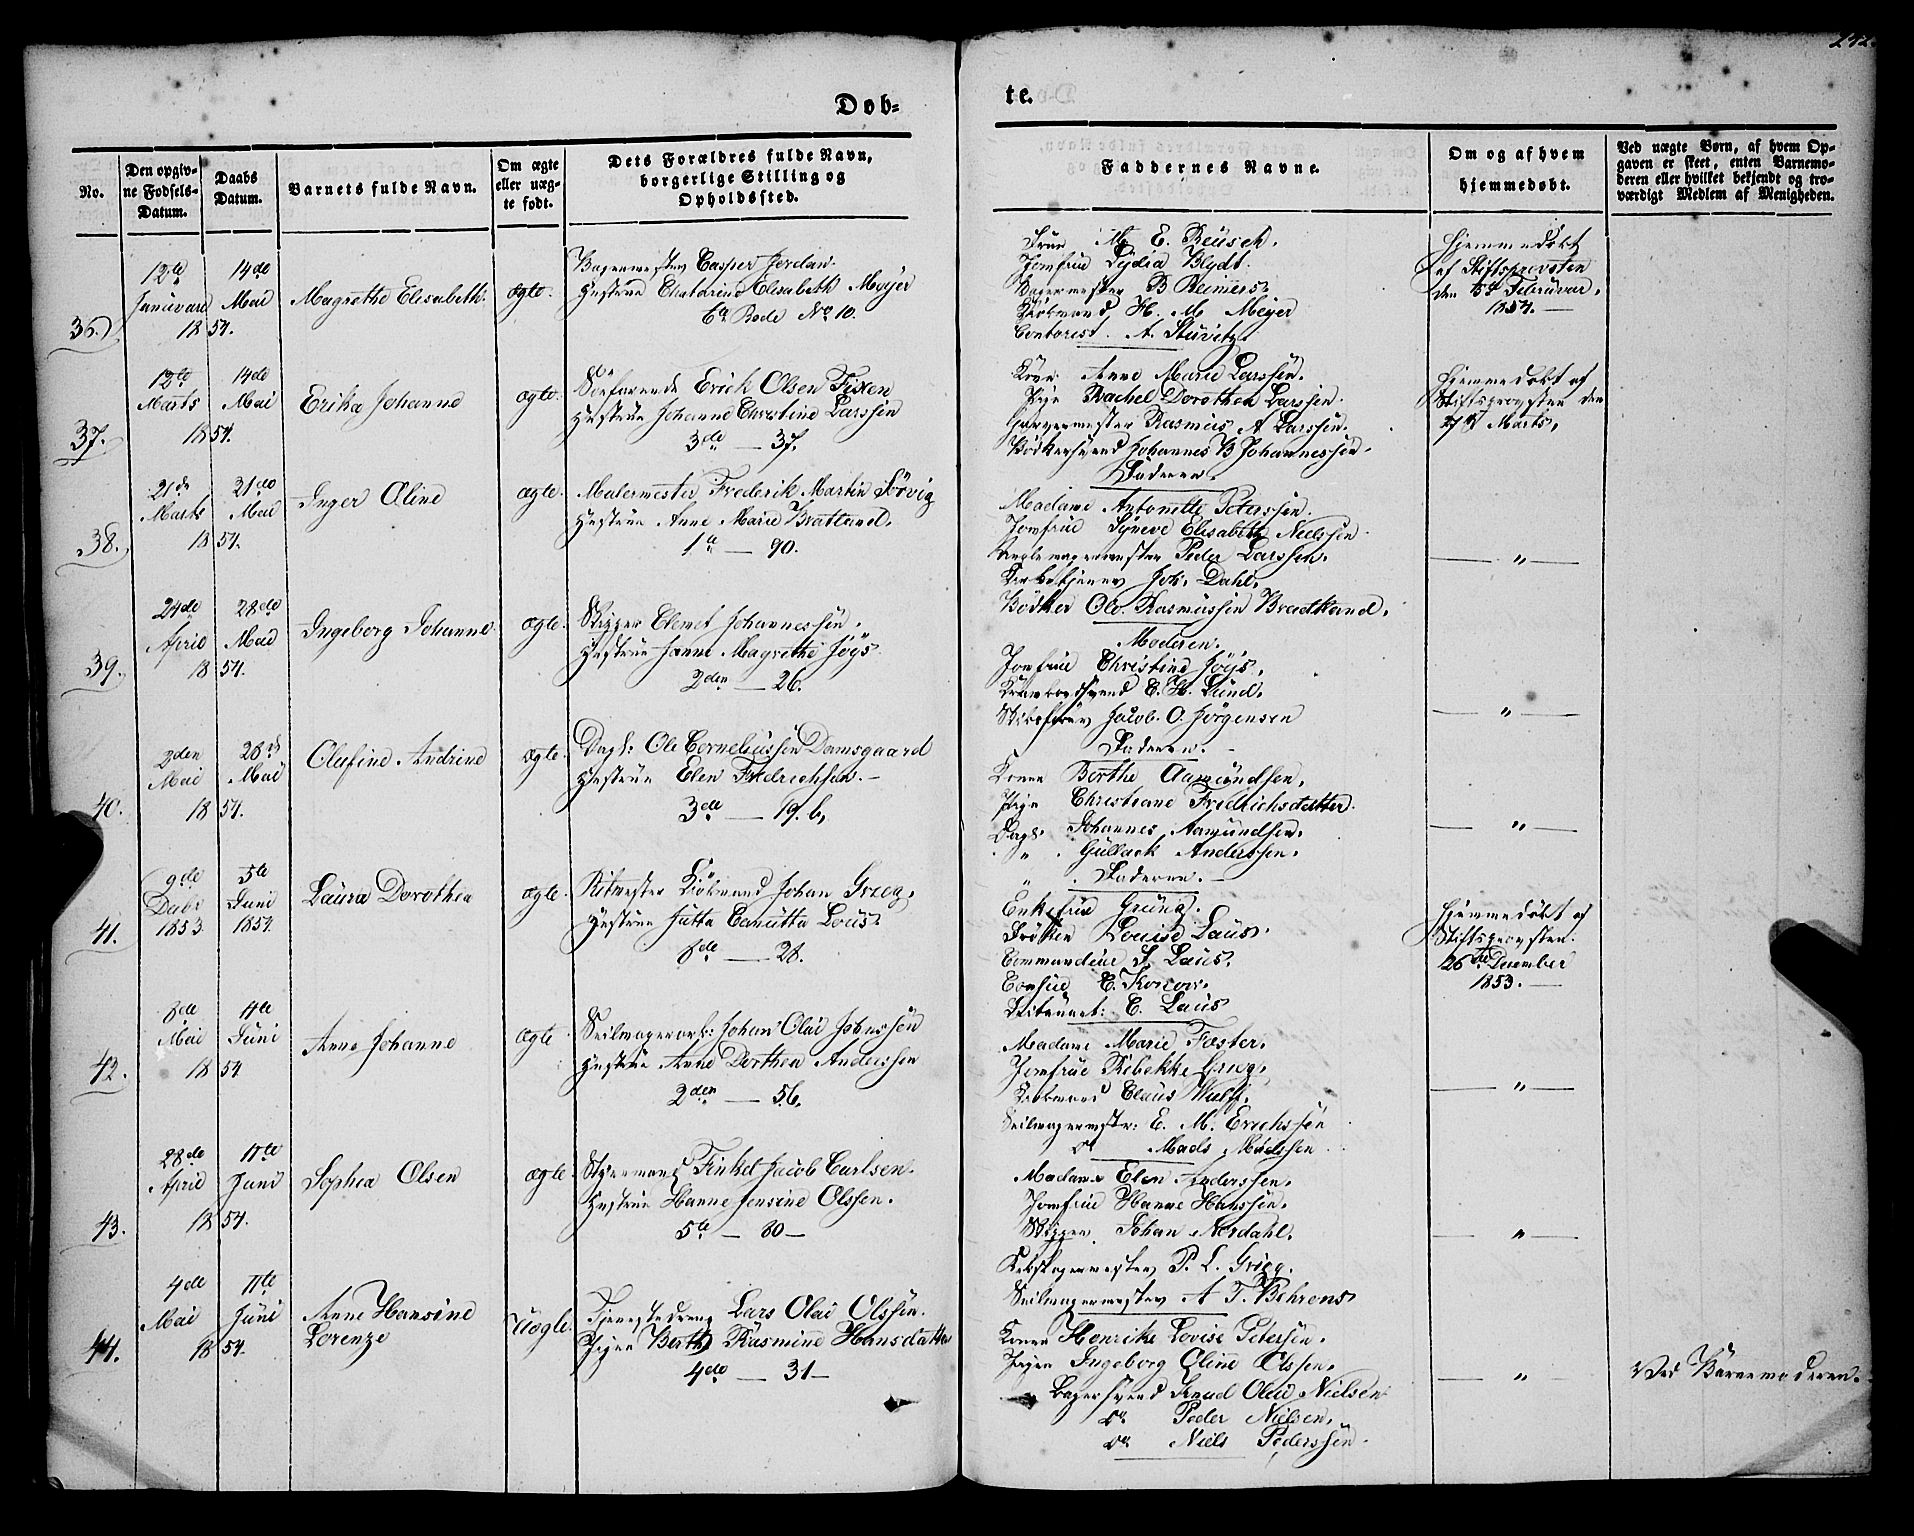 242
Døb=
te.
No.
Den opgiv-
ne Fødsels-
Datum.
Daabs
Datum.
Barnets fulde Navn.
Om ægte
eller uæg-
te født.
Dets Forældres fulde Navn,
borgerlige Stilling og
Opholdssted.
Faddernes Navne.
Om og af hvem
hjemmedøbt.
Ved uægte Børn, af hvem Op-
gaven er skeet, enten Barnemo-
deren eller hvilket bekjendt og tro-
værdigt Medlem af Menigheden.
36.
12te
Januari
14de
Mai
1854.
Magrethe Elisabeth.
ægte.
Bagermester Casper Jordan.
Hustrue Chatarina Elisabeth Meyer
6te Rode No 10.
Frue M. E. Reüsch.
Jomfrue Lydia Blydt.
Bagermester B Reimers
Kiøbmand H. M. Meyer
Contorist. A. Stüvitz
Hjemmedøbt
af Stiftsprovsten
den Februar,
1854.
37.
12te
Marts
14de
Mai
1854.
Erika Johanne
ægte.
Søefarende Erick Olsen Tixen
Hustrue Johanne Christine Larssen
3de — 37.
Kone Anne Marie Larssen.
Pige Rachel Dorothea Larssen.
Garvermester Rasmus A Larssen.
Bødkersvend Johannes B Johannessen.
Faderen.
Hjemmedøbt af
Stiftsprovsten den
Marts,
38.
21de
Marts
21de
Mai
1854.
Inger Oline
ægte.
Malermester Frederik Martin Sørvig
Hustrue Anne Marie Bratland.
1te — 90.
Madame Antonette Peterssen.
Jomfrue Syneve Elisabeth Nielssen
Peder Larssen.
Kirketjener Joh. Dahl.
Bødker Ole Rasmussen Bradtland.
— " —
39.
24de
April
28de
Mai
1854.
Ingeborg Johanne
ægte.
Skipper Clemet Johannessen.
Hustrue Hanne Magrethe Joys.
2den — 26.
Moderen.
Jomfrue Christine Joys.
Krambodsvend C. H. Lund.
Skibsfører Jacob. O. Jørgensen
Faderen.
— " —
40.
2den
Mai
28de
Mai
1854.
Olufine Andrine
ægte.
Dagk: Ole Corneliussen Damsgaard
Hustrue Elen Fredrichsen.
3de — 19. b,
Konen Berthe Aamundsen,
Pige Christiane Fredrichsdatter.
Dagk. Johannes Aamundsen.
" Gullack Anderssen.
" Faderen.
— " —
41.
9de
Debr
1853
5te
Juni
1854.
Laura Dorothea
ægte.
Ritmester Kiøbmand Johan Grieg.
Hustrue Jutta Canutta Lous.
8de — 28.
Enkefrue Grüng.
Frøken Louise Laus.
Commandeur S. Laus.
Consul C. Konow.
Lieutnant: C. Laus
Hjemmedøbt af
Stiftsprovsten.
26de December
1853.
42.
8de
Mai
4de
Juni
1854
Anne Johanne
ægte
Seilmagerarb: Johan Olai Johnssen
Hustrue Anne Dorthea Anderssen
2den — 56.
Madame Marie Foster.
Jomfrue Rebekke Grieg.
Kiøbmand Claus Wulff.
Seilmagermester: E. M. Erichssen
do Mads Madssen
— " —
43.
28de
April
11te
Juni
1854.
Sophia Olsen
ægte.
Styrmand Finkel Jacob Carlsen.
Hustrue Hanne Jensine Olssen.
5te — 80 —
Madame Elen Anderssen.
Jomfrue Hanne Hanssen.
Skipper Johan Nordahl.
Rebslagermester P. L. Grieg.
Seilmagermester A. T. Behrens
— " —
44.
4de
Mai
11te
Juni
1854.
Anne Hansine
Lorenze
Uægte.
Tjenestedreng Lars Olai Olssen.
Pigen Berthe Rasmine Hansdatter
4de — 31 —
Konen Henrike Lovise Petersen.
Pigen Ingeborg Oline Olssen.
Bagersvend Knud Olai Nielsen
do Peder Nielsen.
do Niels Pederssen.
— " —
Ved Barnemoderen.